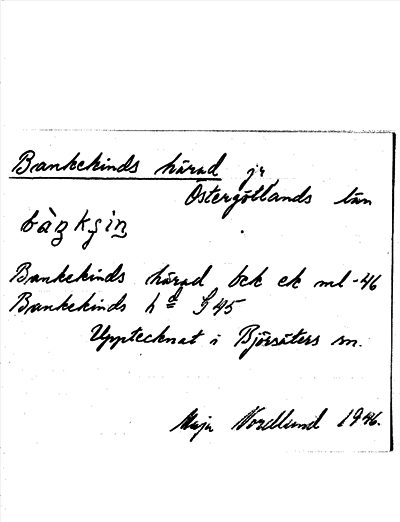 Bankekinds härad jr
Östergötlands län
Bankekinds härad bck ek ml -46
Bankekinds hd G 45
Upptecknat i Björsäters sn.
Maja Nordlund 1946.